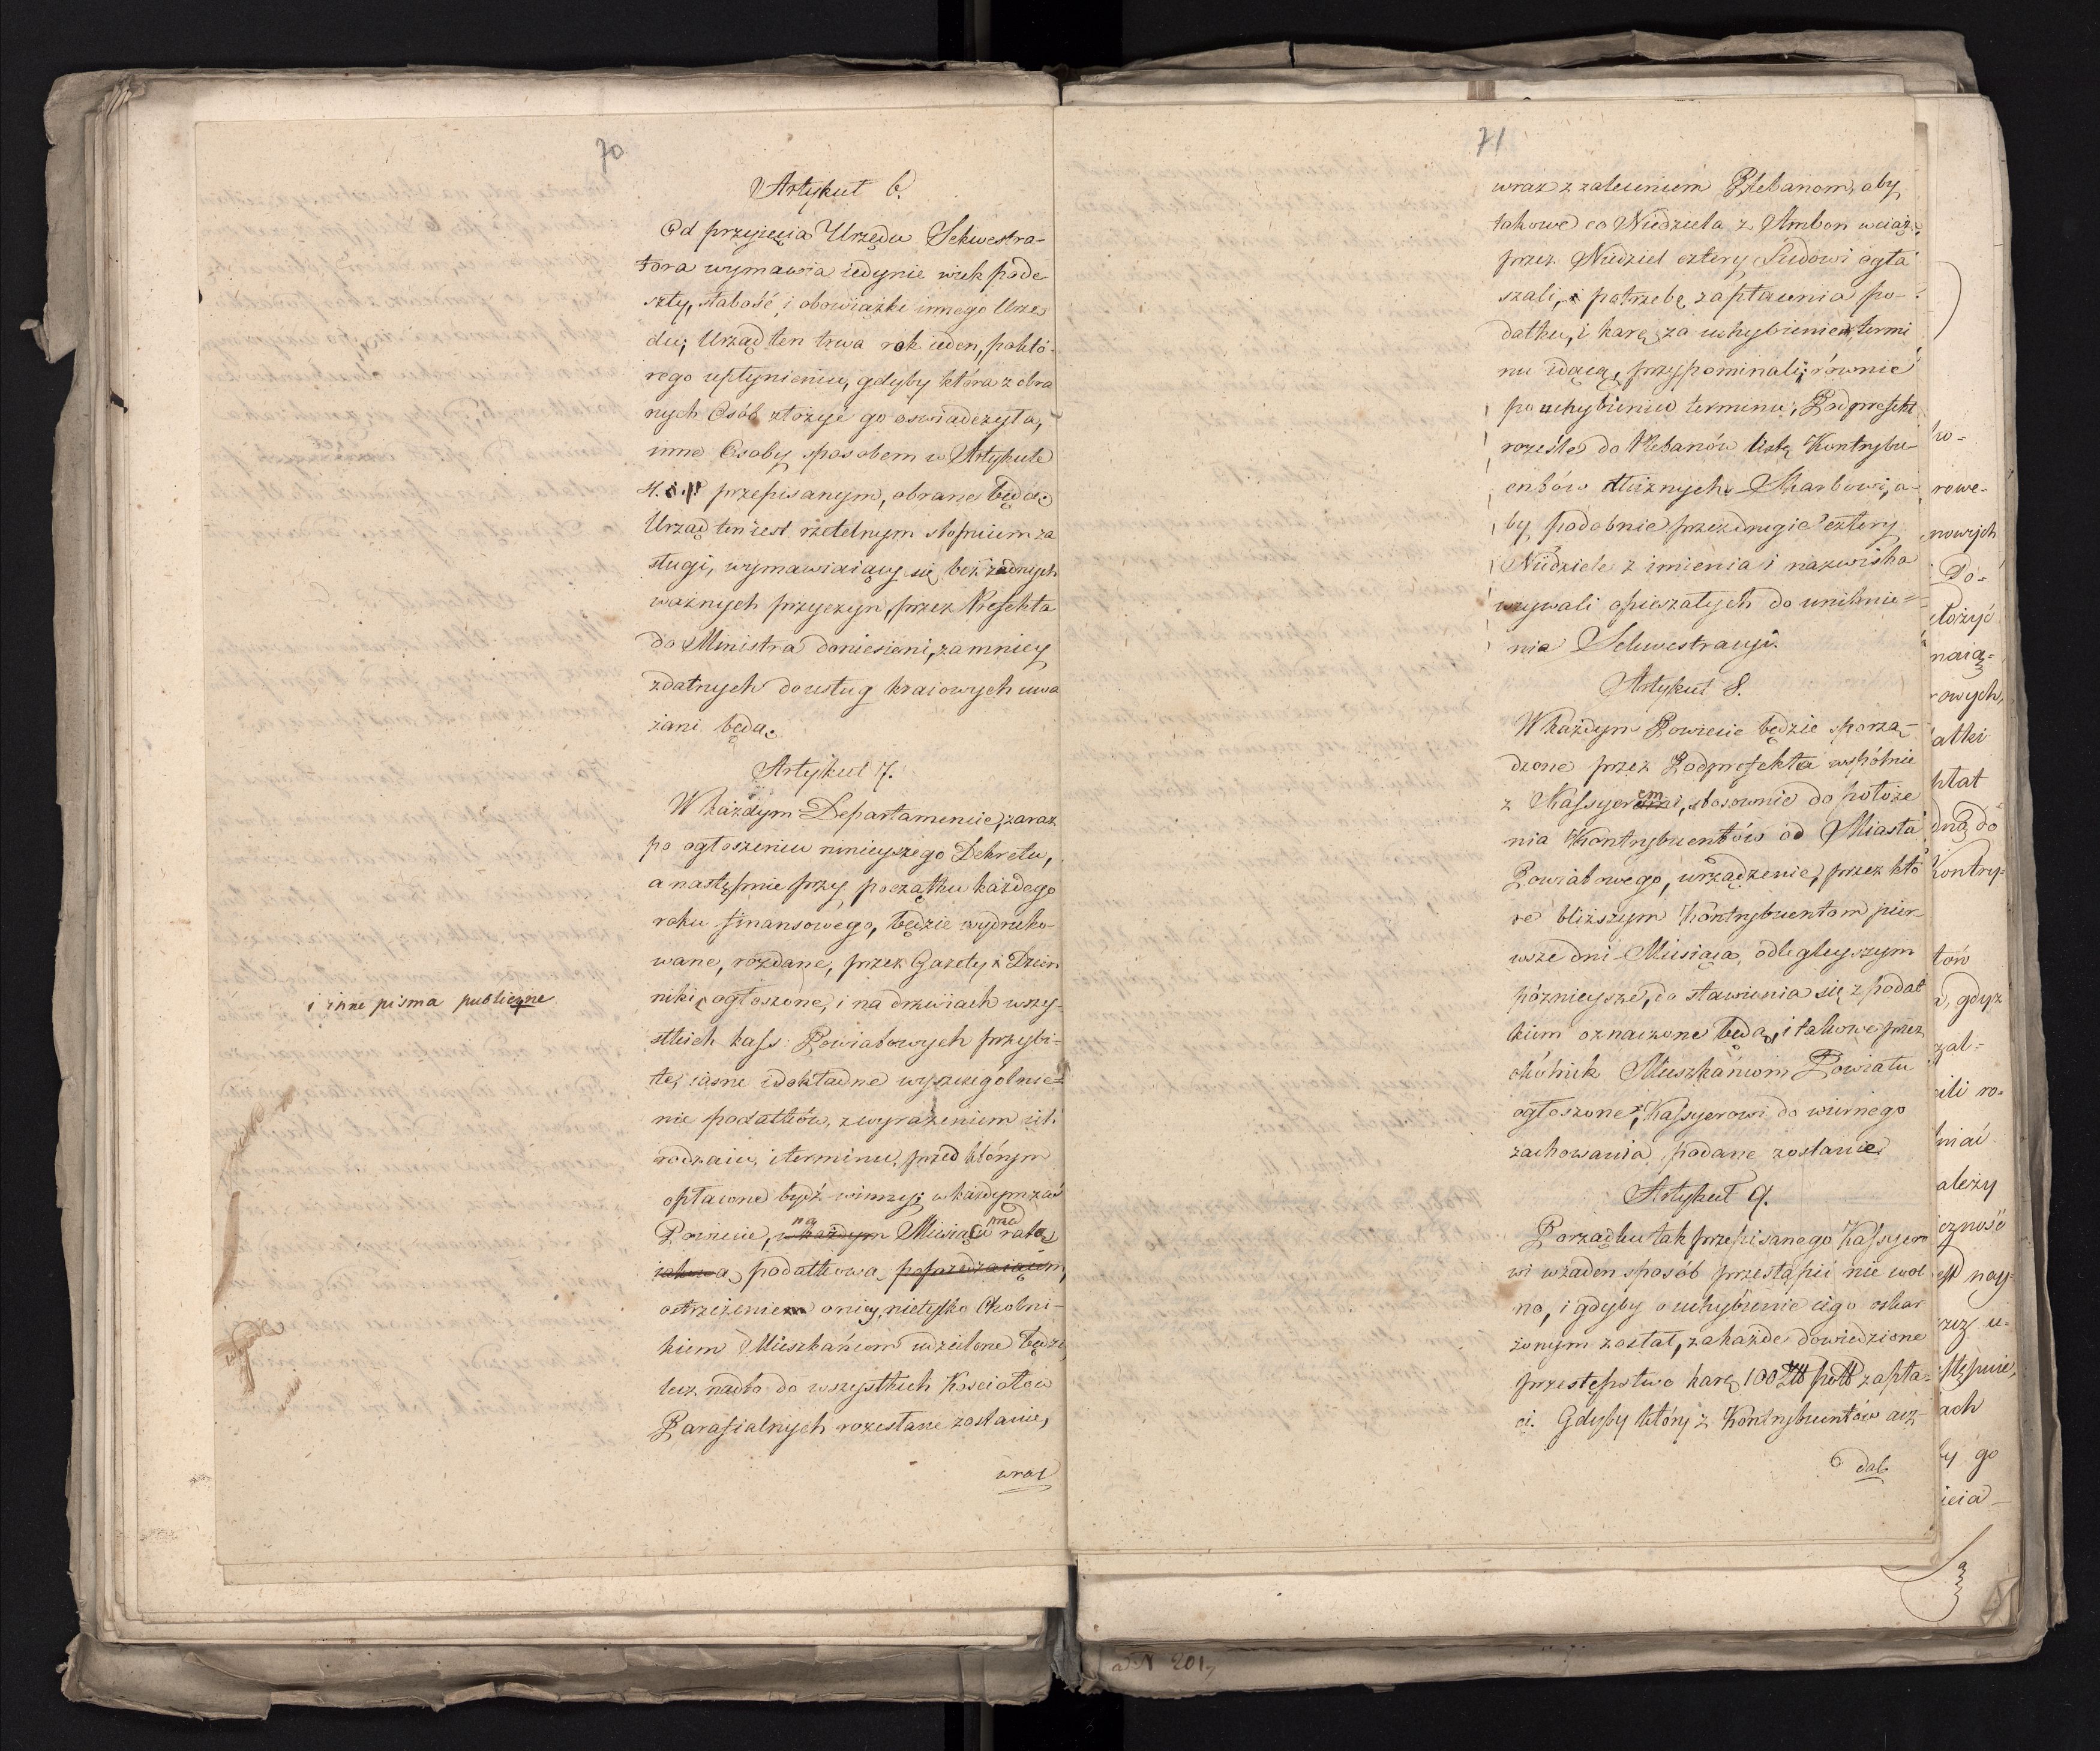 70
Artykuł 6.
Od przyięcia Urzędu Sekwestra-
tora wymawia iedynie wiek pode
szły, słabość i obowiązki innego Urzę
du; Urząd ten trwa rok ieden, po któ-
rego upłynieniu, gdyby która z obra
nych Osób złożyć go oswiadczyła,
inne Osoby sposobem w Artykule
4. przepisanym, obrane będą.
Urząd ten iest rzetelnym stopniem za
sługi, wymawiaiący się bez żadnych
ważnych przyczyn, przez Prefekta
do Ministra doniesieni, za mniey
zdatnych do usług kraiowych uwa
żani będą.
Artykuł 7.
W każdym Departamencie, zaraz
po ogłoszeniu ninieyszego Dekretu,
a następnie przy początku każdego
roku finansowego, będzie wydruko-
wane, rozdane, przez Gazety i Dzien
niki ogłoszone, i na drzwiach wszy-
i inne pisma publiczne
stkich kass Powiatowych przybi-
te, iasne i dokładne wyszczególnie-
nie podatków, z wyrażeniem ich
rodzaiu, i terminu, przed którym
opłacone bydź winny; w każdym zaś
Powiecie, w każdym na Miesiąc przed ratą
iakową podatkową, poprzedzaiącem,
ostrzeżeniem o niey, nietylko Okolni-
kiem Mieszkańcom udzielone będzie,
lecz nadto do wszystkich Kosciołow
Parafialnych rozesłane zostanie,
wraz
71
wraz z zaleceniem Plebanom, aby
takowe co Niedziela z Ambon wciąż
przez Niedziel cztery Ludowi ogła
szali, i potrzebę zapłacenia po-
datku, i karę za uchybienie termi
nu idącą, przypominali; równie
po uchybieniu terminu, Podprefekt
roześle do Plebanów listę Kontrybu-
entów dłużnych Skarbowi, a-
by podobnie przez drugie cztery
Niedziele z imienia i nazwiska
wzywali opieszałych do uniknie-
nia Sekwestracyi.
Artykuł 8.
W każdym Powiecie będzie sporzą-
dzone przez Podprefekta wspólnie
z Kassyerem, stosownie do położe
nia Kontrybuentów od Miasta
Powiatowego, urządzenie, przez któ
re bliższym Kontrybuentom pier
wsze dni Miesiąca, odległeyszym
póznieysze, do stawienia się z podat
kiem oznaczone będą, i takowe przez
okólnik Mieszkańcom Powiatu
ogłoszone, Kassyerowi do wiernego
zachowania podane zostanie.
Artykuł 9.
Porządku tak przepisanego Kassyero
wi w żaden sposób przestąpić nie wol
no, i gdyby o uchybienie iego oskar
żonym został, za każde dowiedzione
przestępstwo karę 100 Złł poll zapła-
ci. Gdyby który z Kontrybuentów
ko-
rowe-
nowych
Do-
łożyć
naią-
rowych,
atki
ntat
dną do
Kontry-
tów
gdyz
zal-
ili ro-
niać
ależy
czność
est nay-
rzez u-
stępnie,
ach
by go
icia-
a N 201